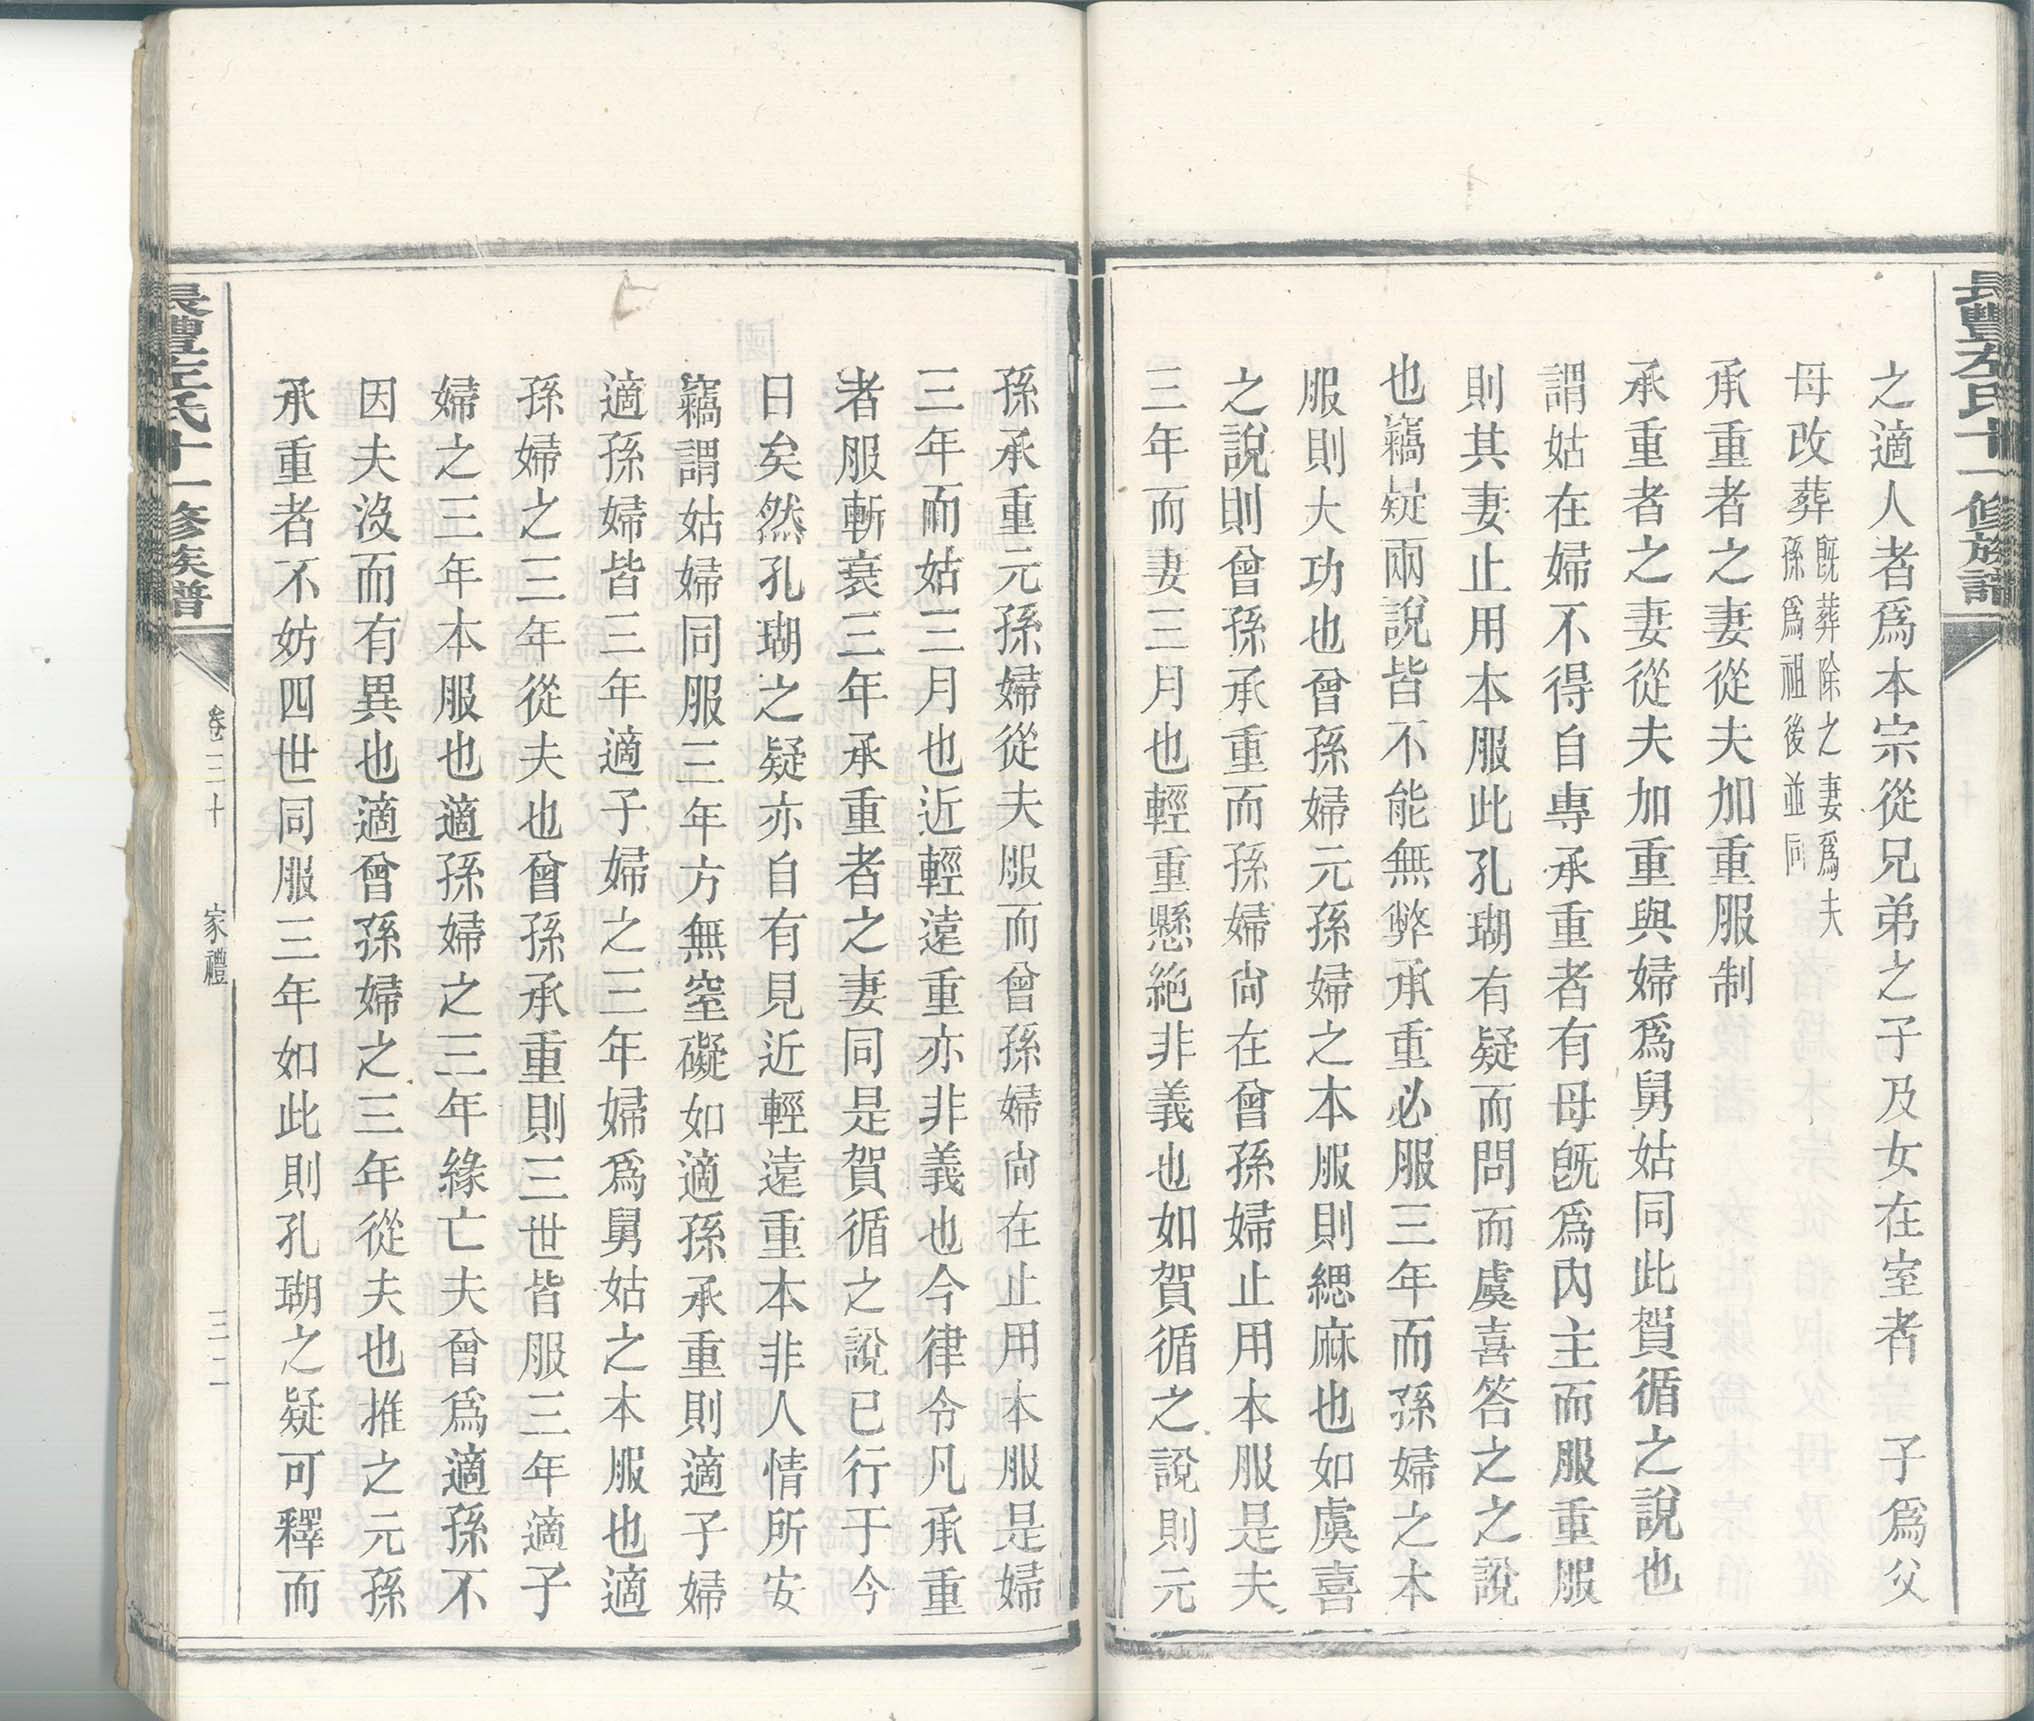 長豐左氏十一修族譜
之適人者爲本宗從兄弟之子及女在室者　子爲父
母改葬旣葬除之妻爲夫
孫爲祖後並同
承重者之妻從夫加重服制
承重者之妻從夫加重與婦爲舅姑同此賀循之說也
謂姑在婦不得自專承重者有母旣爲內主而服重服
則其妻止用本服此孔瑚有疑而問而虞喜答之之說
也竊疑兩說皆不能無弊承重必服三年而孫婦之本
服則大功也曾孫婦元孫婦之本服則緦麻也如虞喜
之說則曾孫承重而孫婦尙在曾孫婦止用本服是夫
三年而妻三月也輕重懸絶非義也如賀循之說則元
孫承重元孫婦從夫服而曾孫婦尙在止用本服是婦
三年而姑三月也近輕遠重亦非義也今律令凡承重
者服斬衰三年承重者之妻同是賀循之說已行于今
日矣然孔瑚之疑亦自有見近輕遠重本非人情所安
竊謂姑婦同服三年方無窒礙如適孫承重則適子婦
適孫婦皆三年適子婦之三年婦爲舅姑之本服也適
孫婦之三年從夫也曾孫承重則三世皆服三年適子
婦之三年本服也適孫婦之三年緣亡夫曾爲適孫不
因夫沒而有異也適曾孫婦之三年從夫也推之元孫
承重者不妨四世同服三年如此則孔瑚之疑可釋而
長豐左氏十一修族譜
卷三十　家禮　三二